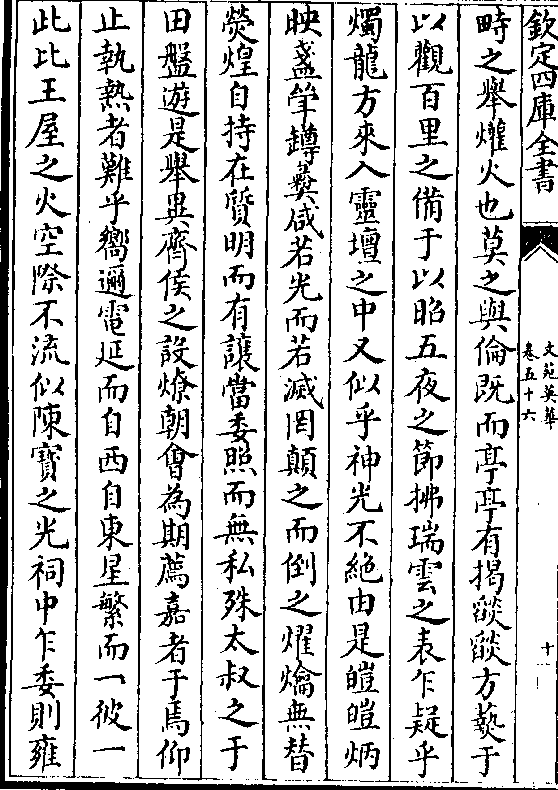 欽定四庫全書
文苑英華
卷五十六
十一
畤之舉爟火也莫之與倫既而亭亭有揭燄燄方爇于
以觀百里之備于以昭五夜之節拂瑞雲之表乍疑乎
燭龍方來入靈壇之中又似乎神光不絶由是皚皚炳
映盞斚罇彞咸若光而若滅罔顛之而倒之燿爚無替
熒煌自持在質明而有讓當委照而無私殊太叔之于
田盤遊是舉異齊侯之設燎朝會為期薦嘉者于焉仰
止執熱者難乎嚮邇電延而自西自東星繁而一彼一
此比王屋之火空際不流似陳寳之光祠中乍委則雍